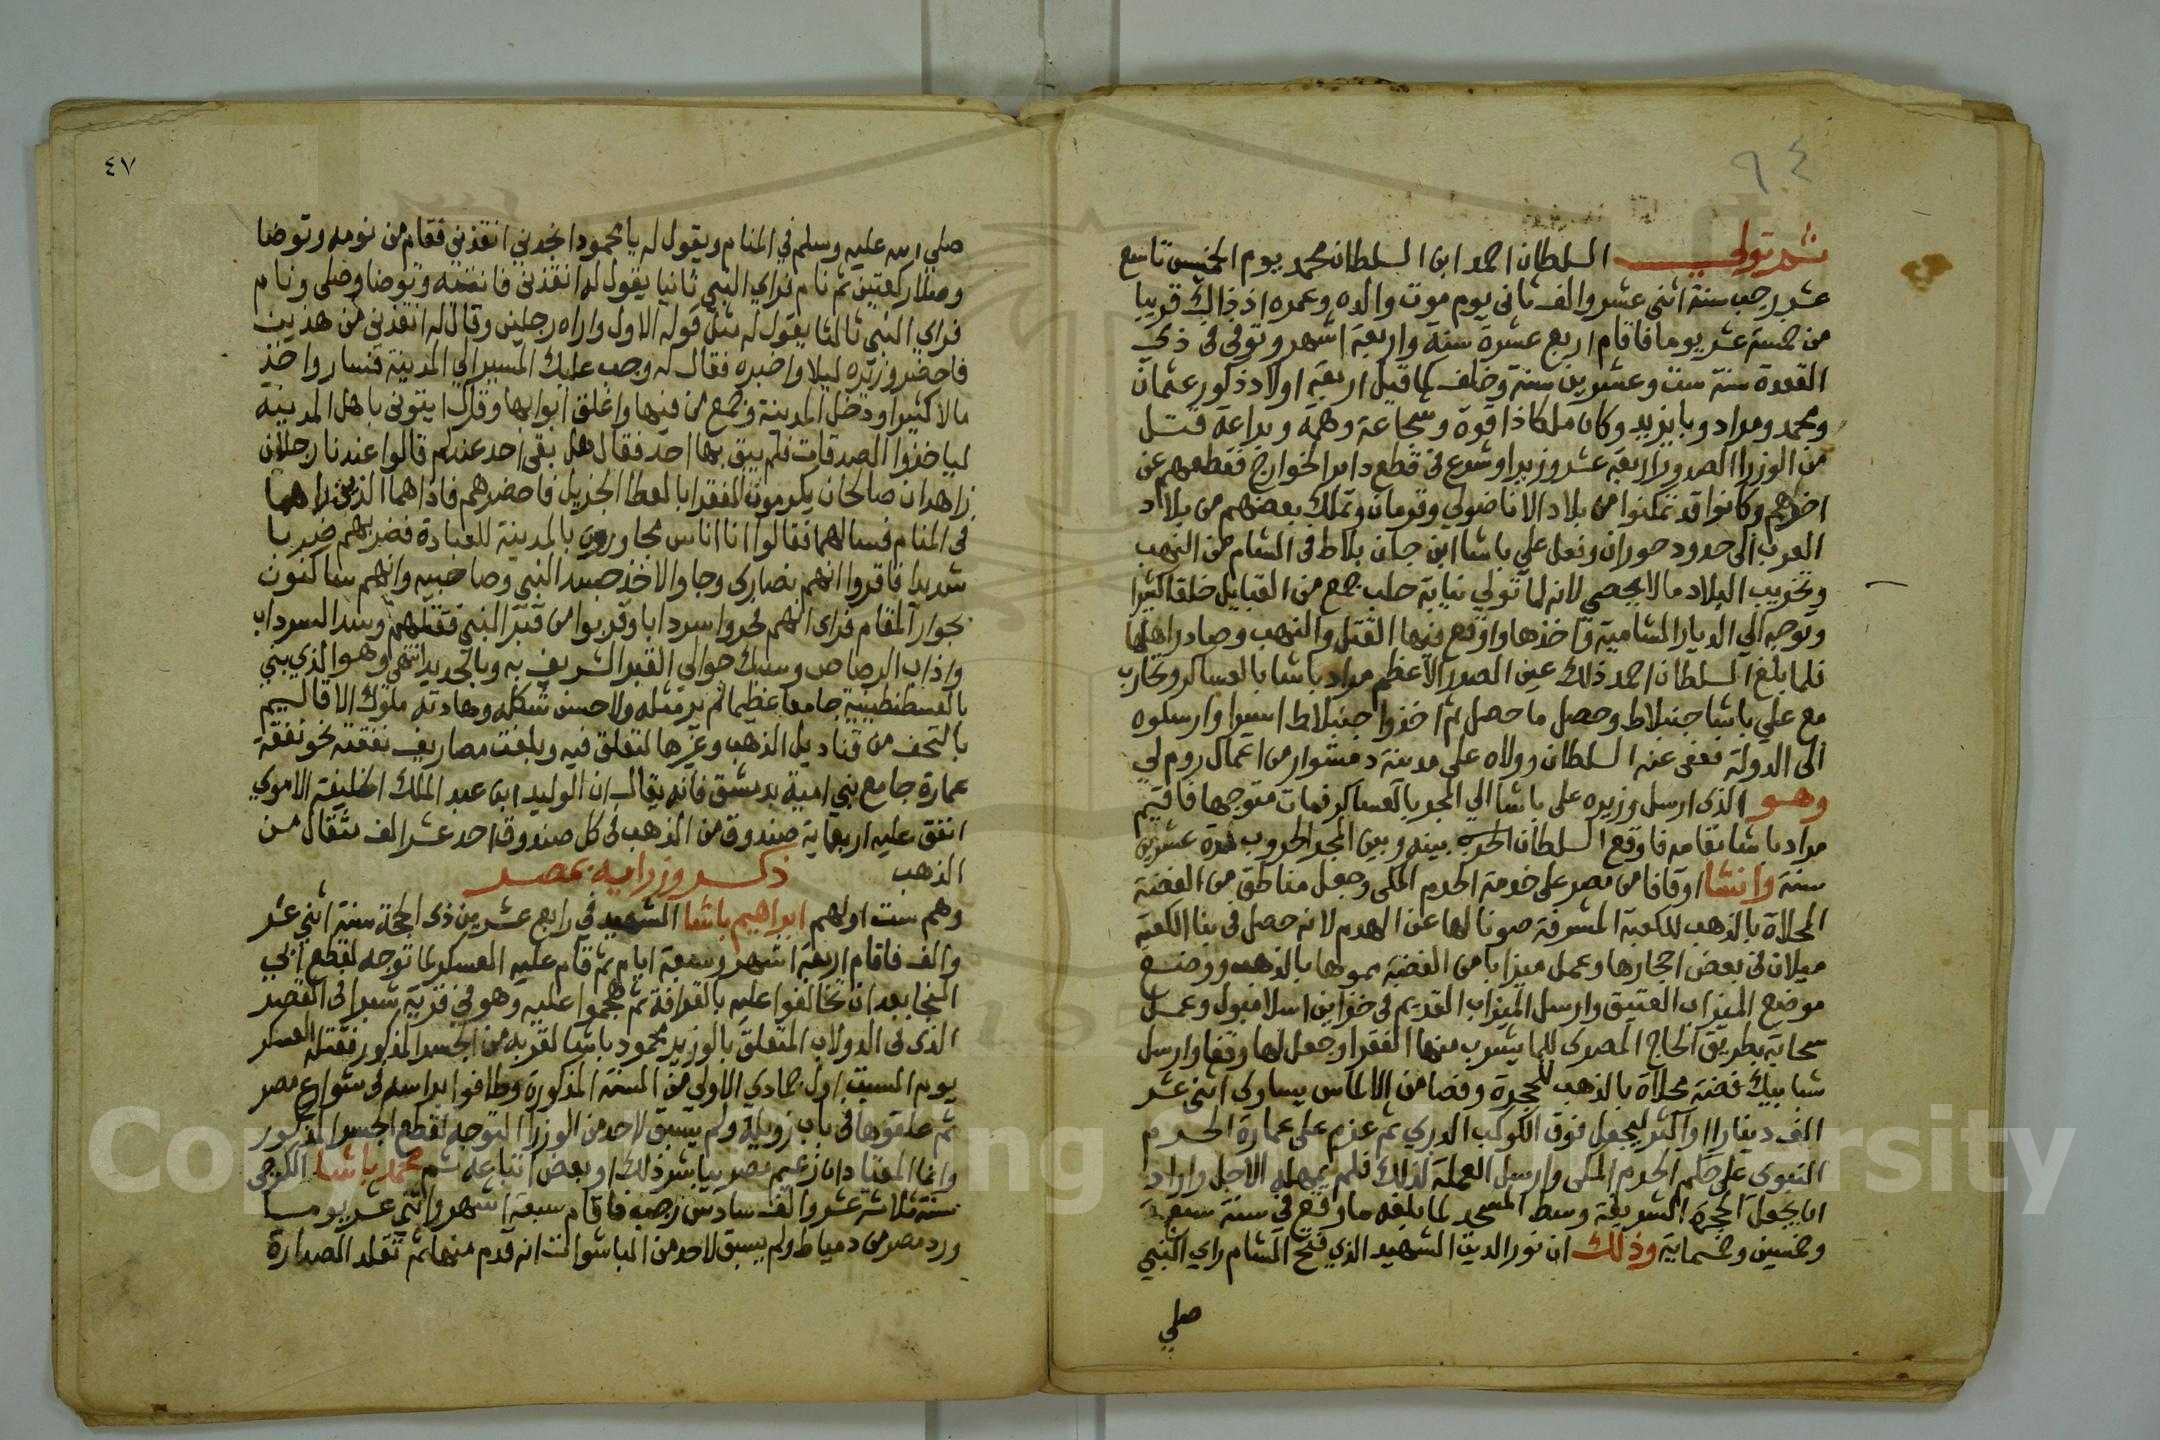 ٩٤
ثم تولى السلطان احمد ابن السلطان محمد يوم الخميس تاسع
عشر رجب سنة اثني عشر والف ثاني يوم موت والده وعمره اذ ذاك قريبا
من خمسة عشر يوما فاقام اربع عشرة سنة واربعة اشهر وتوفى فى ذي
القعدة سنة ست وعشرين سنة وخلف كما قيل اربعة اولاد ذكور عثمان
ومحمد ومراد وبايزيد وكان ملكا ذا قوة وشجاعة وهمة وبراعة قتل
من الوزرا الصدور اربعة عشر وزيرا وشرع فى قطع دابر الخوارج فقطعهم عن
اخرهم وكانوا قد تمكنوا من بلاد الاناضولي وقرمان وتملك بعضهم من بلاد
العرب الى حدود حوران وفعل علي باشا ابن جان بلاط فى الشام من النهب
وتخريب البلاد ما لا يحصي لانه لما تولي نيابة حلب جمع من القبايل خلقا كثيرا
وتوجه الي الديار الشامية واخذها واوقع فيها القتل والنهب وصادر اهلها
فلما بلغ السلطان احمد ذلك عين الصدر الاعظم مراد باشا بالعساكر وتحارب
مع علي باشا جنبلاط وحصل ما حصل ثم اخذوا جنبلاط اسيرا وارسلوه
الى الدولة فعفى عنه السلطان وولاه على مدينة من اعمال روم لي
وهو الذى ارسل وزيره على باشا الي المجر بالعساكر فمات متوجها فاقيم
مراد باشا مقامه فاوقع السلطان الحرب بينه وبين المجر الحروب مدة عشرين
سنة وانشا اوقافا من مصر على خدمة الحرم المكى وجعل مناطق من الفضة
المحلاة بالذهب للكعبة المشرفة صونا لها عن الهدم لانه حصل فى بنا الكعبة
ميلان فى بعض احجارها وعمل ميزابا من الفضة مموها بالذهب ووضع
موضع الميزاب العتيق وارسل الميزاب القديم فى خزاين اسلامبول وعمل
سحابة بطريق الحاج المصرى للما يشرب منها الفقرا وجعل لها وقفا وارسل
شبابيك فضة محلاة بالذهب للحجرة وفصا من الالماس يساوى اثنى عشر
الف دينارا واكثر ليجعل فوق الكوكب الدري ثم عزم على عمارة الحرم
النبوى على حكم الحرم المكى وارسل العملة لذلك فلم يمهله الاجل واراد
ان يجعل الحجرة الشريفة وسط المسجد لما بلغه ما وقع في سنة سبعة
وخمسين وخمسماية وذلك ان نور الدين الشهيد الذي فتح الشام راي النبي
صلي
٤٧
صلي الله عليه وسلم في المنام ويقول له يا محمود انجدني انقذني فقام من نومه وتوضا
وصلا ركعتين ثم نام فراي النبي ثانيا يقول له انقذني فانتبه وتوضا وصلى ونام
فراي النبي ثالثا يقول له مثل قوله الاول واراه رجلين وقال له انقذني من هذين
فاحضر وزيره ليلا واخبره فقال له وجب عليك المسير الي المدينة فسار واخذ
مالا كثيرا ودخل المدينة وجمع من فيها واغلق ابوابها وقال ايتونى باهل المدينة
لياخذوا الصدقات فلم يبق بها احد فقال هل بقى احد عندكم قالوا عندنا رجلان
زاهدان صالحان يكرمون الفقرا بالعطا الجزيل فاحضرهم فاذا هما الذين راهما
فى المنام فسالهما فقالوا انا اناس مجاورون بالمدينة للعبادة فضربهم ضربا
شديدا فاقروا انهم نصارى وجاوا لاخذ جسد النبي وصاحبيه وانهم ساكنون
بجوار المقام فراى انهم حفروا سردابا وقربوا من قبر النبي فقتلهم وسد السرداب
واذاب الرصاص وسبك حوالى القبر الشريف به وبالحديد انتهى وهو الذي بني
بالقسطنطينية جامعا عظيما لم ير مثله ولا حسن شكله وهادته ملوك الاقاليم
بالتحف من قناديل الذهب وغيرها لتعلق فيه وبلغت مصاريف نفقته نحو نفقة
عمارة جامع بني امية بدمشق فانه يقال ان الوليد ابن عبد الملك الخليفة الاموي
انفق عليه اربعماية صندوق من الذهب فى كل صندوق احد عشر الف مثقال من
الذهب ذكر وزرايه بمصر
وهم ست اولهم ابراهيم باشا الشهيد فى رابع عشرين ذى الحجة سنة اثني عشر
والف فاقام اربعة اشهر وسبعة ايام ثم قام عليه العسكر لما توجه لقطع ابي
النجا بعد ان تحالفوا عليه بالقرافة ثم هجموا عليه وهو في قرية شبرا فى القصر
الذى فى الدولاب المتعلق بالوزير محمود باشا لقربه من الجسر المذكور فقتله العسكر
يوم السبت اول جمادي الاولي من السنة المذكورة وطافوا براسه فى شوارع مصر
ثم علقوها فى باب زويلة ولم يسبق لاحد من الوزرا التوجه لقطع الجسر المذكور
وانما المعتاد ان زعيم مصر يباشر ذلك او بعض اتباعه ثم محمد باشا الكورجى
سنة ثلاثة عشر والف سادس رجب فاقام سبعة اشهر واثني عشر يوما
ورد مصر من دمياط ولم يسبق لاحد من الباشوات انه قدم منها ثم تقلد الصدارة